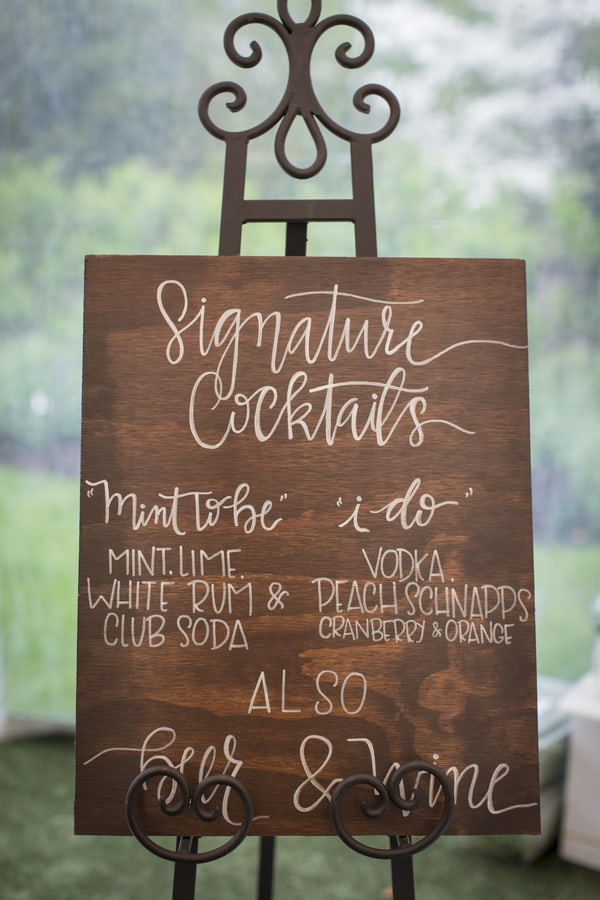 Signature
Cocktails
"Mint to be" "i do"
MINT. LIME. VODKA.
WHITE RUM & PEACH SCHNAPPS
CLUB SODA CRANBERRY & ORANGE
ALSO
beer & wine